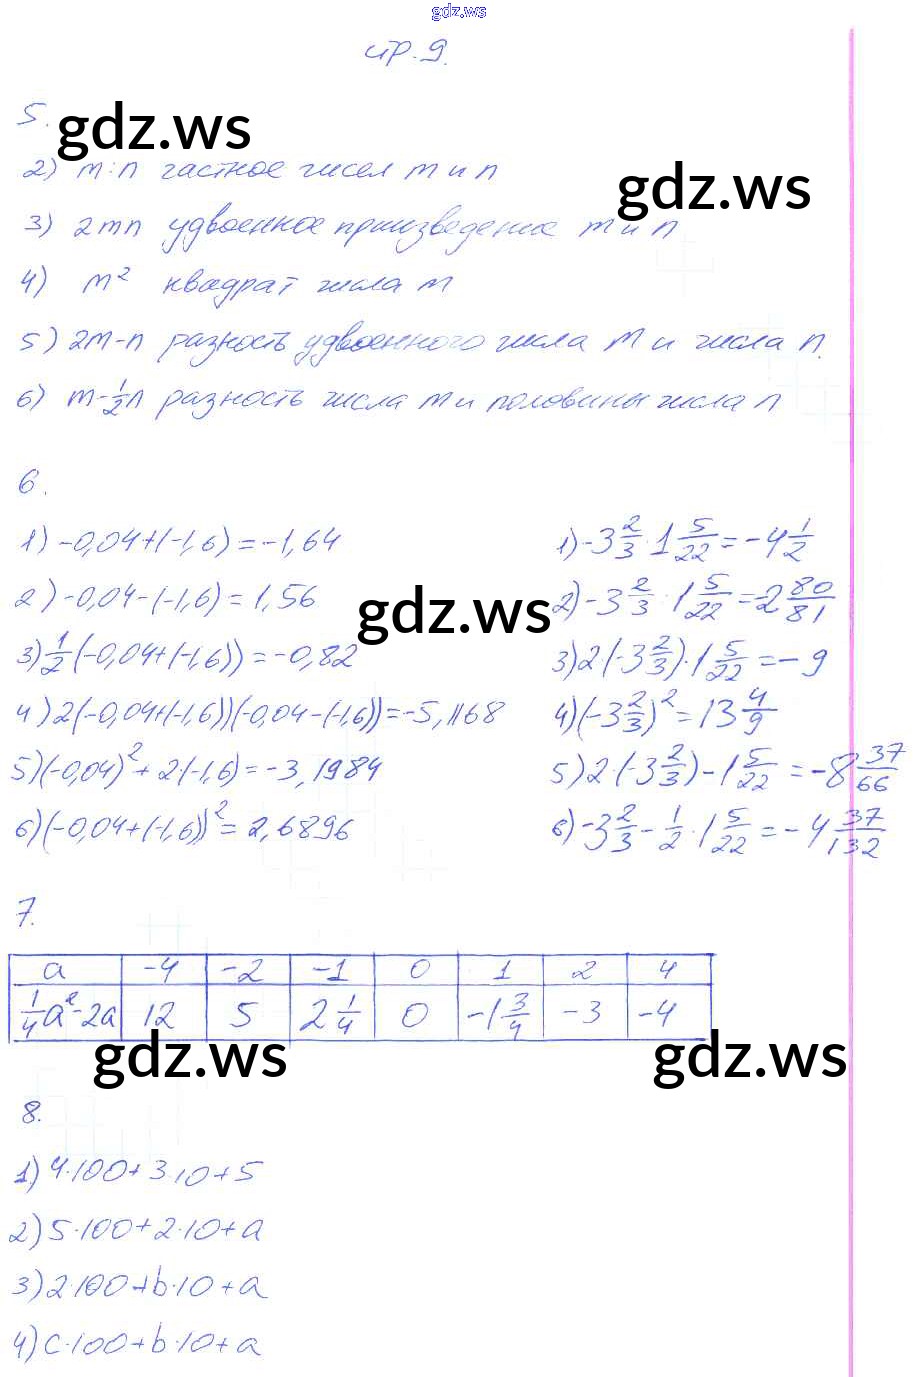 gdz.ws
стр. 9.
5.
gdz.ws
2) m:n частное чисел m и n
gdz.ws
3) 2mn удвоенное произведение m и n
4) m² квадрат числа m
5) 2m-n разность удвоенного числа m и числа n.
6) m-1/2n разность числа m и половины числа n
6.
1) -0,04+(-1,6)=-1,64
2) -0,04-(-1,6)=1,56
3) 1/2(-0,04+(-1,6))=-0,82
4) 2(-0,04+(-1,6))(-0,04-(-1,6))=-5,1168
5) (-0,04)²+2(-1,6)=-3,1984
6) (-0,04+(-1,6))²=2,6896
gdz.ws
1) -3 2/3·1 5/22=-4 1/2
2) -3 2/3:1 5/22=-2 80/81
3) 2(-3 2/3)·1 5/22=-9
4) (-3 2/3)²=13 4/9
5) 2·(-3 2/3)-1 5/22=-8 37/66
6) -3 2/3-1/2·1 5/22=-4 37/132
7.
a -4 -2 -1 0 1 2 4
1/4a²-2a 12 5 2 1/4 0 -1 3/4 -3 -4
gdz.ws gdz.ws
8.
1) 4·100+3·10+5
2) 5·100+2·10+a
3) 2·100+b·10+a
4) c·100+b·10+a